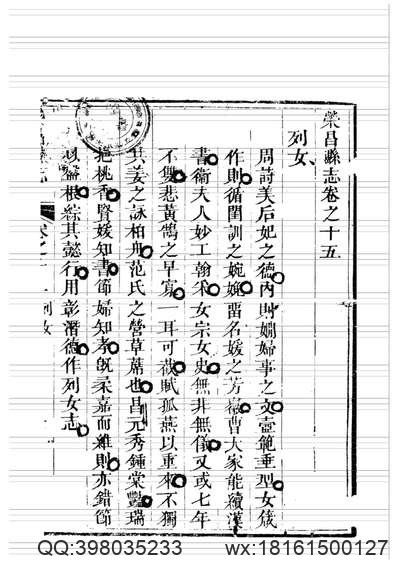 榮昌縣志卷之十五
列女
周詩美后妃之德內則嫺婦事之文壼範垂型女箴
作則循閨訓之婉娩畱名媛之芳徽曹大家能續漢
書衞夫人妙工翰采女宗女史無非無儀又或七年
不雙悲黃鵠之早寡一耳可截賦孤燕以重來不獨
共姜之詠柏舟范氏之營草蓆也昌元秀鍾棠豔瑞
挹桃香賢媛知書節婦知孝旣柔嘉而維則亦錯節
以 根綜其懿行用彰潛德作列女志
列女
QQ:398035233
wx:18161500127